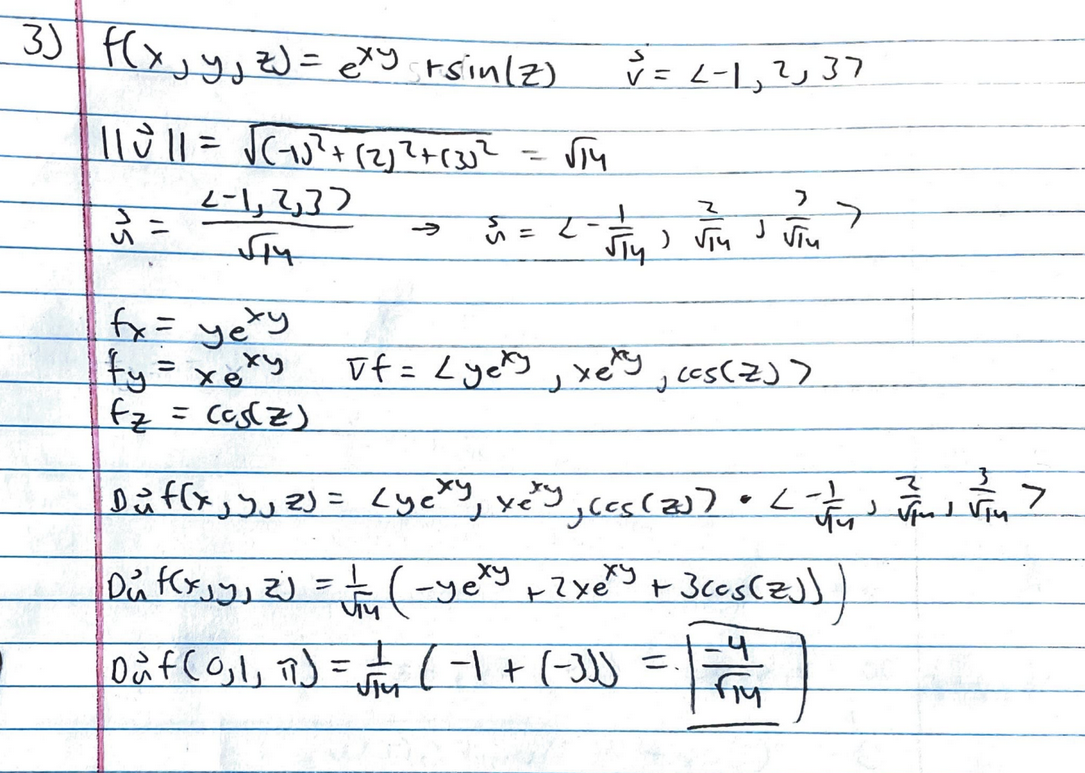 3) f(x, y, z) = e^xy + sin(z) v⃗ = <-1, 2, 3>
||v⃗|| = √((-1)²+(2)²+(3)²) = √14
u⃗ = <-1, 2, 3>/√14 → u⃗ = <-1/√14, 2/√14, 3/√14>
fx = ye^xy
fy = xe^xy ∇f = <ye^xy, xe^xy, cos(z)>
fz = cos(z)
Du⃗ f(x, y, z) = <ye^xy, xe^xy, cos(z)> • <-1/√14, 2/√14, 3/√14>
Du⃗ f(x, y, z) = 1/√14 (-ye^xy + 2xe^xy + 3cos(z)))
Du⃗ f(0, 1, π) = 1/√14 (-1 + (-3)) = -4/√14